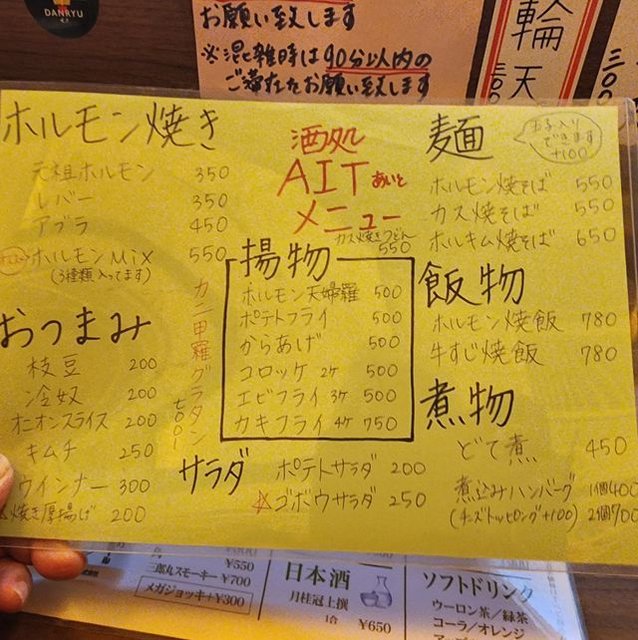 DANRYU
お願い致します
※混雑時は90分以内の
ご滞在をお願い致します
輪
天
ホルモン焼き
元祖ホルモン 350
レバー 350
アブラ 450
ホルモンMix 550
(3種類入ってます)
おつまみ
枝豆 200
冷奴 200
オニオンスライス 200
キムチ 250
ウインナー 300
焼き厚揚げ 200
酒処
AIT あいと
メニュー
カス焼きうどん
550
揚物
ホルモン天婦羅 500
ポテトフライ 500
からあげ 500
コロッケ 2ケ 500
エビフライ 3ケ 500
カキフライ 4ケ 750
カニ甲羅グラタン
サラダ
ポテトサラダ 200
☆ゴボウサラダ 250
麺
玉子入り
できます
+100
ホルモン焼そば 550
カス焼そば 550
ホルキム焼そば 650
飯物
ホルモン焼飯 780
牛すじ焼飯 780
煮物
どて煮 450
煮込みハンバーグ 1個400
(チーズトッピング+100) 2個700
¥550
三郎丸スモーキー ¥700
メガジョッキ+¥300
日本酒
月桂冠上撰
1合 ¥650
ソフトドリンク
ウーロン茶／緑茶
コーラ／オレンジ